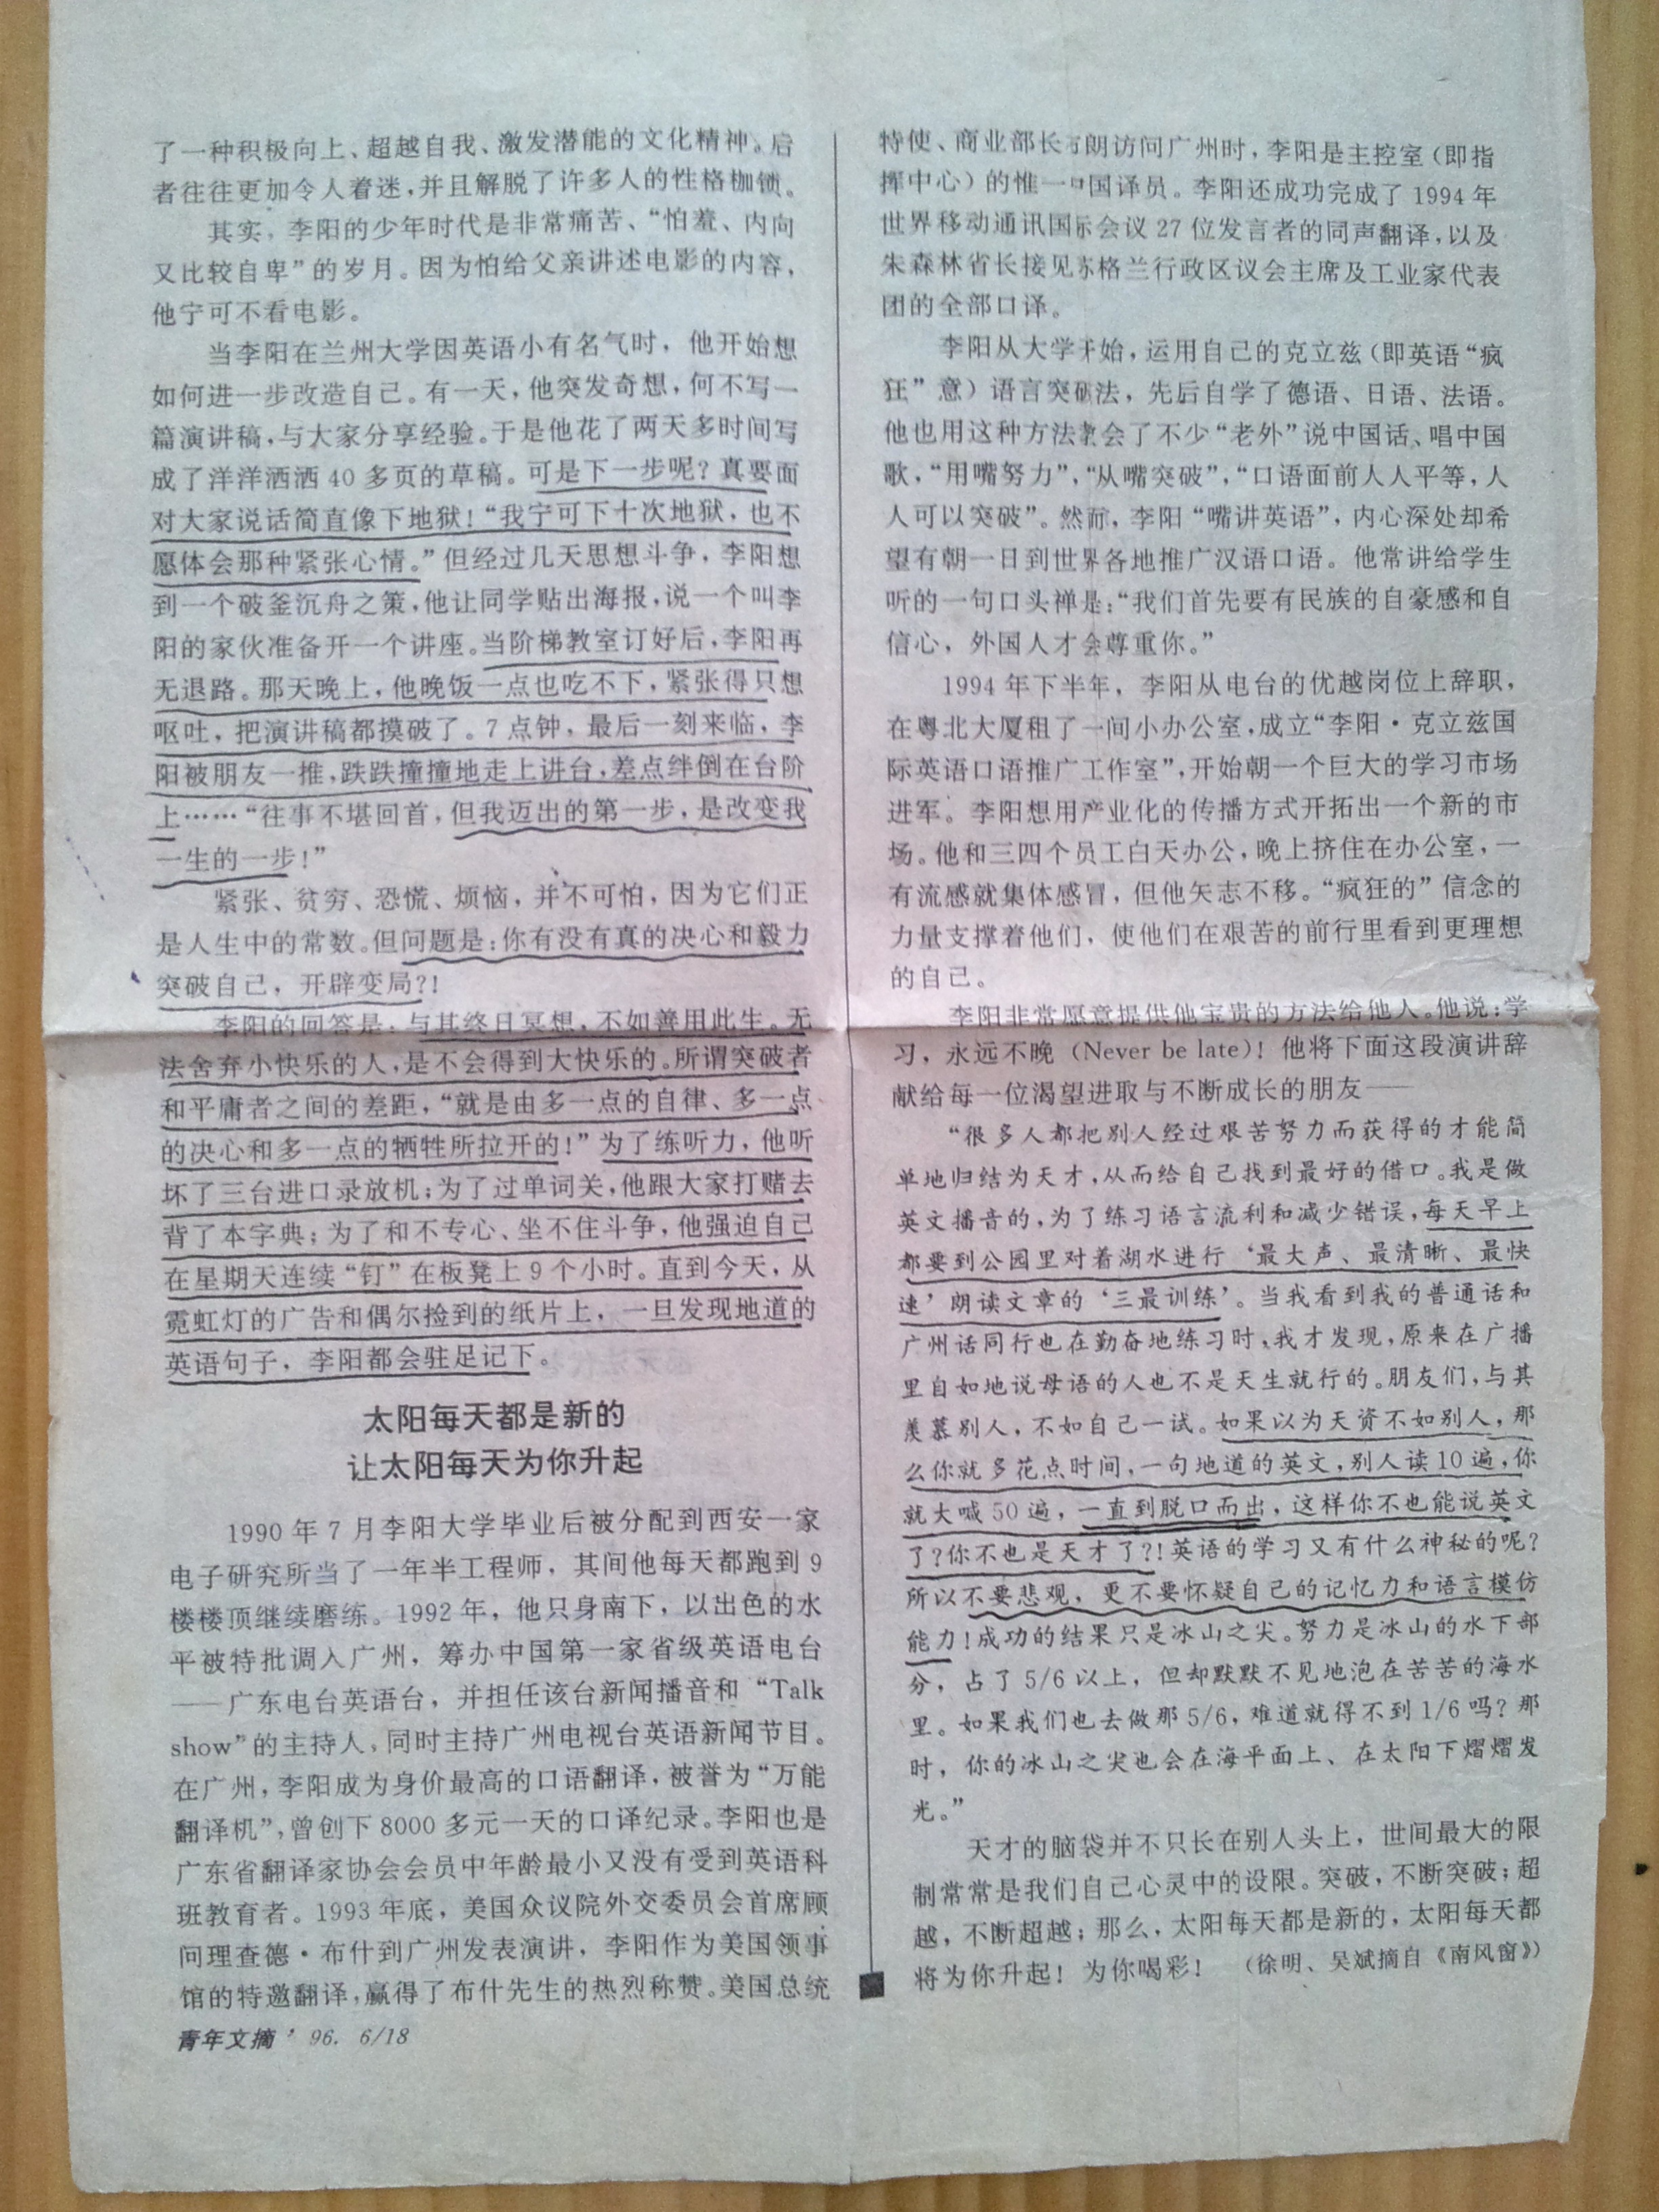 了一种积极向上、超越自我、激发潜能的文化精神。后
者往往更加令人着迷，并且解脱了许多人的性格枷锁。
其实，李阳的少年时代是非常痛苦、“怕羞、内向
又比较自卑”的岁月。因为怕给父亲讲述电影的内容，
他宁可不看电影。
当李阳在兰州大学因英语小有名气时，他开始想
如何进一步改造自己。有一天，他突发奇想，何不写一
篇演讲稿，与大家分享经验。于是他花了两天多时间写
成了洋洋洒洒40多页的草稿。可是下一步呢？真要面
对大家说话简直像下地狱！“我宁可下十次地狱，也不
愿体会那种紧张心情。”但经过几天思想斗争，李阳想
到一个破釜沉舟之策，他让同学贴出海报，说一个叫李
阳的家伙准备开一个讲座。当阶梯教室订好后，李阳再
无退路。那天晚上，他晚饭一点也吃不下，紧张得只想
呕吐，把演讲稿都摸破了。7点钟，最后一刻来临，李
阳被朋友一推，跌跌撞撞地走上讲台，差点绊倒在台阶
上……“往事不堪回首，但我迈出的第一步，是改变我
一生的一步！”
紧张、贫穷、恐慌、烦恼，并不可怕，因为它们正
是人生中的常数。但问题是：你有没有真的决心和毅力
突破自己，开辟变局？！
李阳的回答是：与其终日冥想，不如善用此生。无
法舍弃小快乐的人，是不会得到大快乐的。所谓突破者
和平庸者之间的差距，“就是由多一点的自律、多一点
的决心和多一点的牺牲所拉开的！”为了练听力，他听
坏了三台进口录放机；为了过单词关，他跟大家打赌去
背了本字典；为了和不专心、坐不住斗争，他强迫自己
在星期天连续“钉”在板凳上9个小时。直到今天，从
霓虹灯的广告和偶尔捡到的纸片上，一旦发现地道的
英语句子，李阳都会驻足记下。
太阳每天都是新的
让太阳每天为你升起
1990年7月李阳大学毕业后被分配到西安一家
电子研究所当了一年半工程师，其间他每天都跑到9
楼楼顶继续磨练。1992年，他只身南下，以出色的水
平被特批调入广州，筹办中国第一家省级英语电台
——广东电台英语台，并担任该台新闻播音和“Talk
show”的主持人，同时主持广州电视台英语新闻节目。
在广州，李阳成为身价最高的口语翻译，被誉为“万能
翻译机”，曾创下8000多元一天的口译纪录。李阳也是
广东省翻译家协会会员中年龄最小又没有受到英语科
班教育者。1993年底，美国众议院外交委员会首席顾
问理查德·布什到广州发表演讲，李阳作为美国领事
馆的特邀翻译，赢得了布什先生的热烈称赞。美国总统
青年文摘’96. 6/18
特使、商业部长布朗访问广州时，李阳是主控室（即指
挥中心）的惟一中国译员。李阳还成功完成了1994年
世界移动通讯国际会议27位发言者的同声翻译，以及
朱森林省长接见苏格兰行政区议会主席及工业家代表
团的全部口译。
李阳从大学开始，运用自己的克立兹（即英语“疯
狂”意）语言突破法，先后自学了德语、日语、法语。
他也用这种方法教会了不少“老外”说中国话、唱中国
歌，“用嘴努力”，“从嘴突破”，“口语面前人人平等，人
人可以突破”。然而，李阳“嘴讲英语”，内心深处却希
望有朝一日到世界各地推广汉语口语。他常讲给学生
听的一句口头禅是：“我们首先要有民族的自豪感和自
信心，外国人才会尊重你。”
1994年下半年，李阳从电台的优越岗位上辞职，
在粤北大厦租了一间小办公室，成立“李阳·克立兹国
际英语口语推广工作室”，开始朝一个巨大的学习市场
进军。李阳想用产业化的传播方式开拓出一个新的市
场。他和三四个员工白天办公，晚上挤住在办公室，一
有流感就集体感冒，但他矢志不移。“疯狂的”信念的
力量支撑着他们，使他们在艰苦的前行里看到更理想
的自己。
李阳非常愿意提供他宝贵的方法给他人。他说：学
习，永远不晚（Never be late）！他将下面这段演讲辞
献给每一位渴望进取与不断成长的朋友——
“很多人都把别人经过艰苦努力而获得的才能简
单地归结为天才，从而给自己找到最好的借口。我是做
英文播音的，为了练习语言流利和减少错误，每天早上
都要到公园里对着湖水进行‘最大声、最清晰、最快
速’朗读文章的‘三最训练’。当我看到我的普通话和
广州话同行也在勤奋地练习时，我才发现，原来在广播
里自如地说母语的人也不是天生就行的。朋友们，与其
羡慕别人，不如自己一试。如果以为天资不如别人，那
么你就多花点时间，一句地道的英文，别人读10遍，你
就大喊50遍，一直到脱口而出，这样你不也能说英文
了？你不也是天才了？！英语的学习又有什么神秘的呢？
所以不要悲观，更不要怀疑自己的记忆力和语言模仿
能力！成功的结果只是冰山之尖。努力是冰山的水下部
分，占了5/6以上，但却默默不见地泡在苦苦的海水
里。如果我们也去做那5/6，难道就得不到1/6吗？那
时，你的冰山之尖也会在海平面上、在太阳下熠熠发
光。”
天才的脑袋并不只长在别人头上，世间最大的限
制常常是我们自己心灵中的设限。突破，不断突破；超
越，不断超越；那么，太阳每天都是新的，太阳每天都
将为你升起！为你喝彩！（徐明、吴斌摘自《南风窗》）